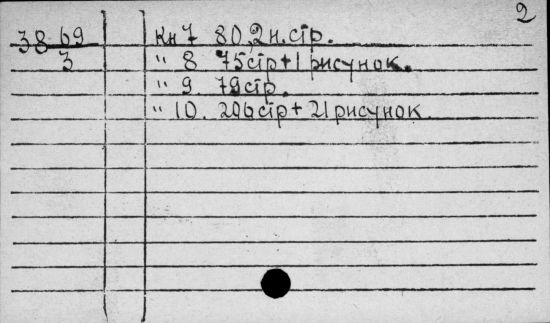 2
38 69
3
Кн 7 80,2 н. стр.
" 8 75стр+1 рисунок.
" 9. 79стр.
" 10. 206стр+21 рисунок.